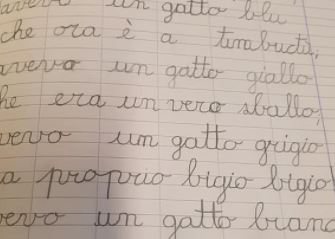 avevo un gatto blu
che ora è a timbuctù,
avevo un gatto giallo
he era un vero sballo,
vevo un gatto grigio
a proprio bigio bigio
vevo un gatto bianc